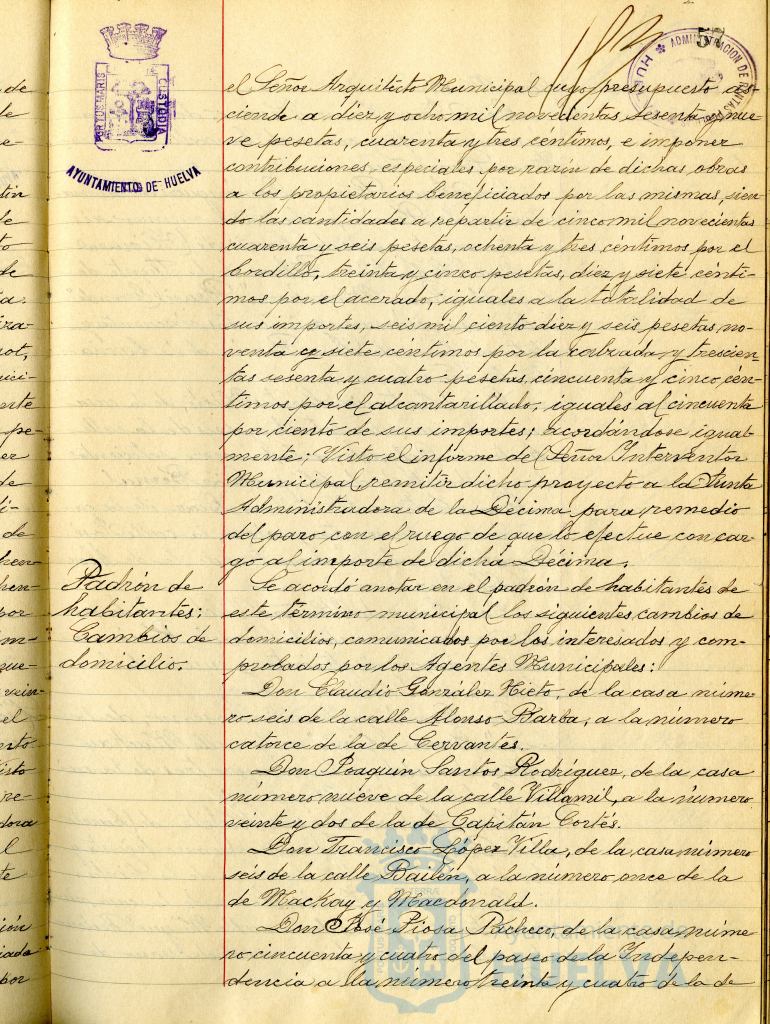 57
PORTUS MARIS
CUSTODIA
AYUNTAMIENTO DE HUELVA
ADMINISTRACION DE RENTAS
HU
el Señor Arquitecto Municipal cuyo presupuesto as-
ciende a diez y ocho mil novecientas sesenta y nue-
ve pesetas, cuarenta y tres céntimos, e imponer
contribuciones especiales por razón de dichas obras
a los propietarios beneficiados por las mismas, sien-
do las cantidades a repartir de cinco mil novecientas
cuarenta y seis pesetas, ochenta y tres céntimos por el
bordillo, treinta y cinco pesetas, diez y siete cénti-
mos por el acerado, iguales a la totalidad de
sus importes, seis mil ciento diez y seis pesetas, no-
venta y siete céntimos por la calzada, y trescien-
tas sesenta y cuatro pesetas, cincuenta y cinco cén-
timos por el alcantarillado, iguales al cincuenta
por ciento de sus importes; acordándose igual-
mente; Visto el informe del Señor Interventor
Municipal, remitir dicho proyecto a la Junta
Administradora de la Décima para remedio
del paro con el ruego de que lo efectue con car-
go al importe de dicha Decima.
Padrón de
habitantes:
Cambios de
domicilio.
Se acordó anotar en el padrón de habitantes de
este término municipal los siguientes cambios de
domicilios, comunicados por los interesados y com-
probados por los Agentes Municipales:
Don Claudio González Nieto, de la casa núme-
ro seis de la calle Alonso Barba, a la número
catorce de la de Cervantes.
Don Joaquín Santos Rodríguez, de la casa
número nueve de la calle Villamil, a la número
veinte y dos de la de Capitán Cortés.
Don Francisco López Villa, de la casa número
séis de la calle Bailén, a la número once de la
de Mackay y Macdonald.
Don José Piosa Pacheco, de la casa núme-
ro, cincuenta y cuatro del paseo de la Indepen-
dencia a la número treinta y cuatro de la de
Ayuntamiento de
HUELVA